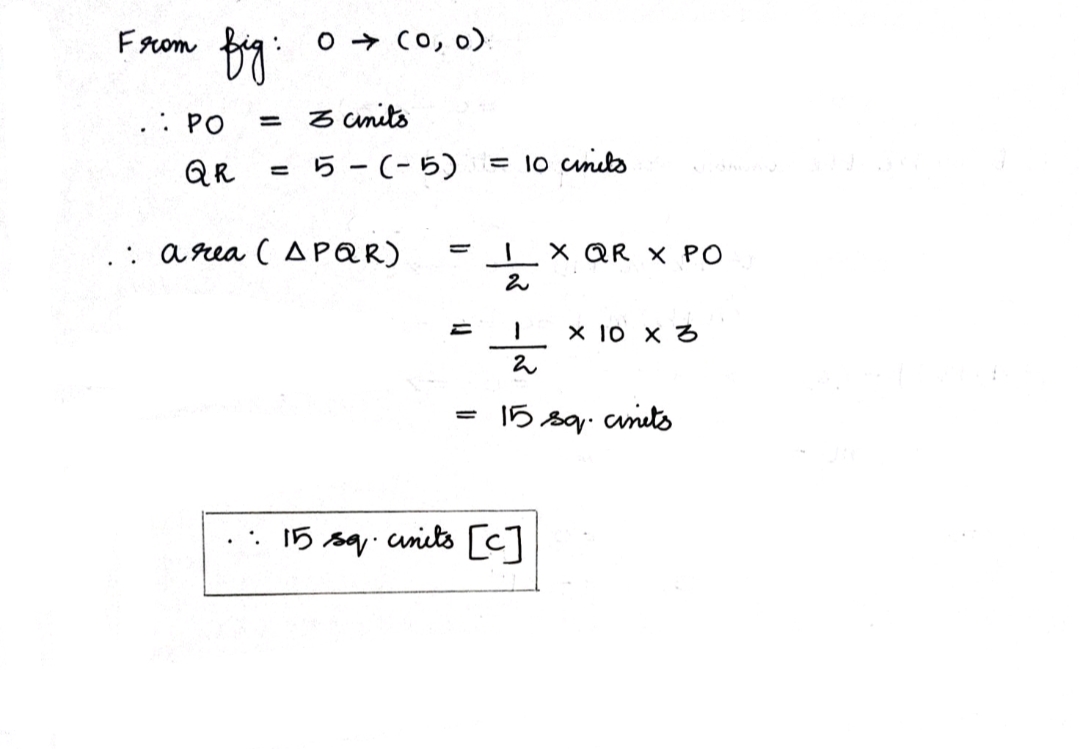 From fig: O → (0, 0)
∴ PO = 3 units
QR = 5 - (-5) = 10 units
∴ area (△PQR) = 1/2 × QR × PO
= 1/2 × 10 × 3
= 15 sq. units
∴ 15 sq. units [C]